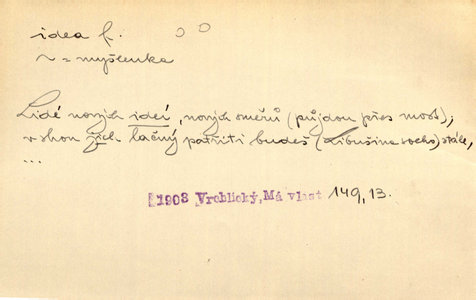 idea f.
~ = myšlenka
Lidé nových ideí, nových směrů (půjdou přes most),
v shon jich lačný patřiti budeš (Libušina socho) stále,
...
1903 Vrchlický, Má vlast 149, 13.